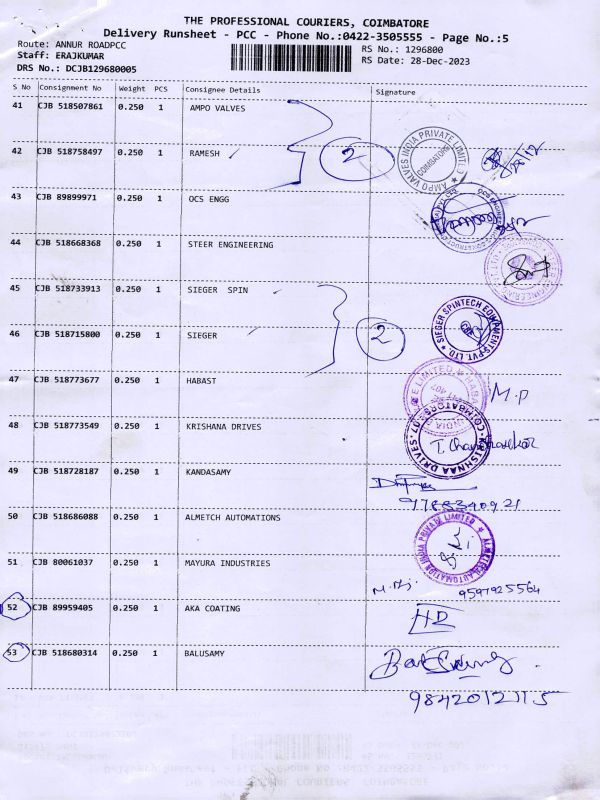 THE PROFESSIONAL COURIERS, COIMBATORE
Delivery Runsheet - PCC - Phone No.:0422-3505555 - Page No.:5
Route: ANNUR ROADPCC
RS No.: 1296800
Staff: ERAJKUMAR
RS Date: 28-Dec-2023
DRS No.: DCJB129680005
S No Consignment No Weight PCS Consignee Details Signature
41 CJB 518507861 0.250 1 AMPO VALVES
42 CJB 518758497 0.250 1 RAMESH
2
AMPO VALVES INDIA PRIVATE LIMITED
COIMBATORE
43 CJB 89899971 0.250 1 OCS ENGG
44 CJB 518668368 0.250 1 STEER ENGINEERING
45 CJB 518733913 0.250 1 SIEGER SPIN
46 CJB 518715800 0.250 1 SIEGER
2
SIEGER SPINTECH EQUIPMENTS PVT. LTD.
47 CJB 518773677 0.250 1 HABAST
M.P
48 CJB 518773549 0.250 1 KRISHANA DRIVES
KRISHNAA DRIVES
49 CJB 518728187 0.250 1 KANDASAMY
9788340921
50 CJB 518686088 0.250 1 ALMETCH AUTOMATIONS
ALMETCH AUTOMATION INDIA PRIVATE LIMITED
51 CJB 80061037 0.250 1 MAYURA INDUSTRIES
9597925564
52 CJB 89959405 0.250 1 AKA COATING
HD
53 CJB 518680314 0.250 1 BALUSAMY
9842012115